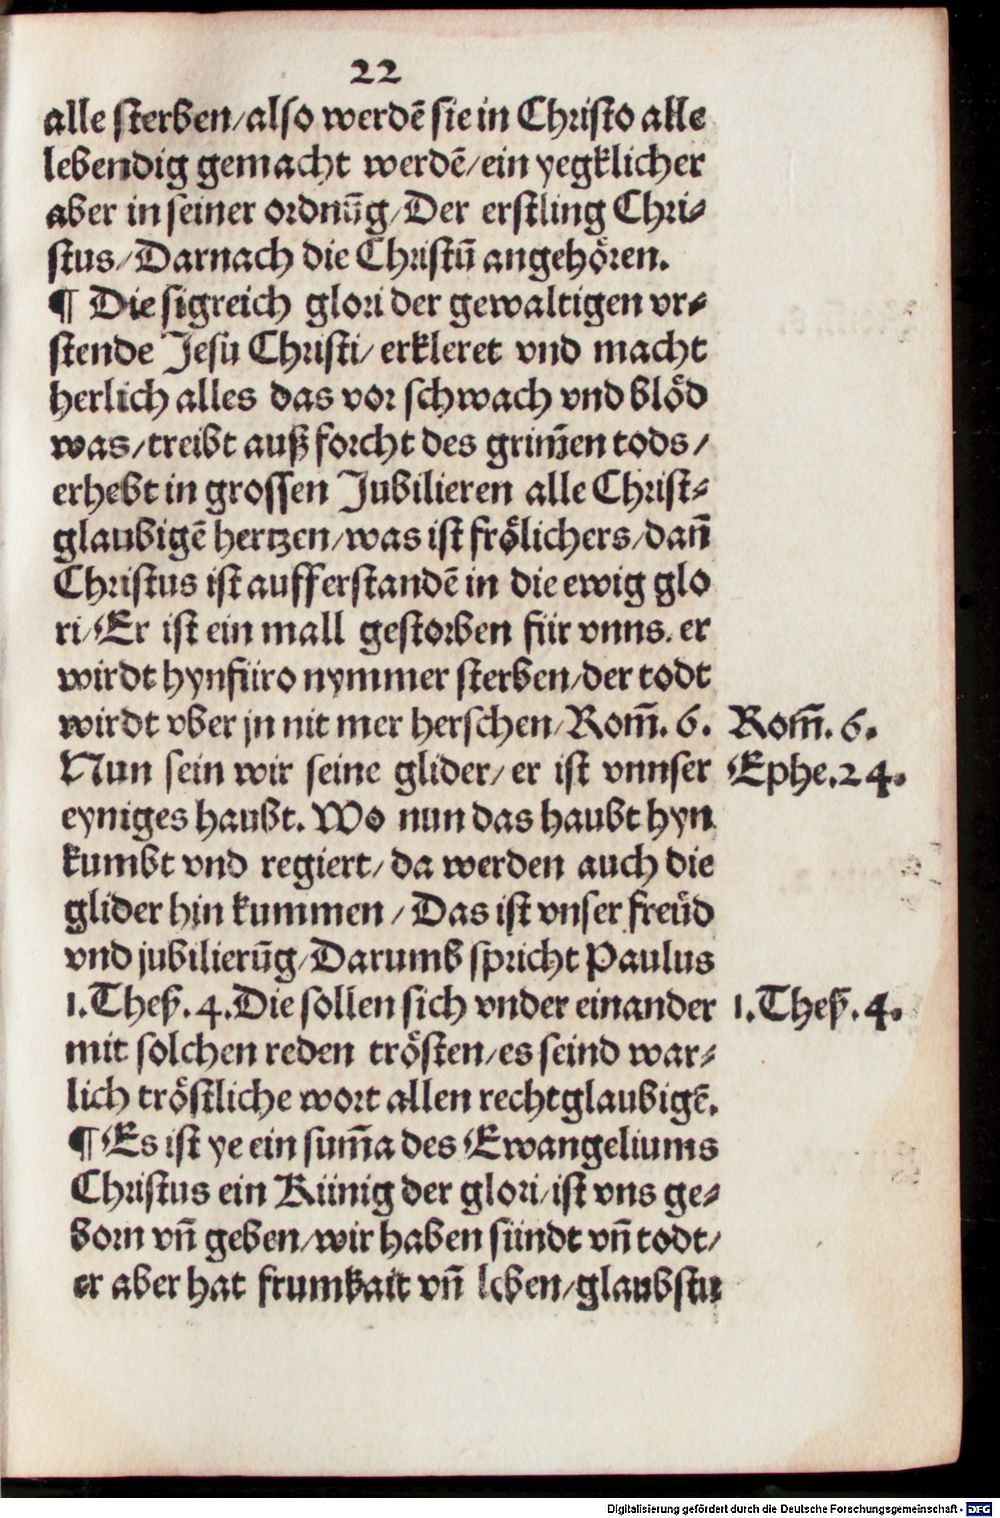 22
alle sterben/also werdē sie in Christo alle
lebendig gemacht werdē/ein yegklicher
aber in seiner ordnūg/Der erstling Chri⸗
stus/Darnach die Christū angehören.
¶ Die sigreich glori der gewaltigen vr⸗
stende Jesu Christi/ erkleret vnd macht
herlich alles das vor schwach vnd blöd
was/treibt auß forcht des grim̄en tods/
erhebt in grossen Jubilieren alle Christ⸗
glaubigē hertzen/was ist frölichers/dan̄
Christus ist aufferstandē in die ewig glo
ri/Er ist ein mall gestorben für vnns. er
wirdt hynfüro nymmer sterben/der todt
wirdt vber jn nit mer herschen/Rom̄. 6. Rom̄. 6.
Nun sein wir seine glider/er ist vnnser Ephe.24.
eyniges haubt. Wo nun das haubt hyn
kumbt vnd regiert/da werden auch die
glider hin kummen/Das ist vnser freüd
vnd jubilierūg/Darumb spricht Paulus
1.Theß.4.Die sollen sich vnder einander 1.Theß.4.
mit solchen reden trösten/es seind war⸗
lich tröstliche wort allen rechtglaubigē.
¶ Es ist ye ein sum̄a des Ewangeliums
Christus ein Künig der glori/ist vns ge⸗
born vn̄ geben/wir haben sündt vn̄ todt/
er aber hat frumkait vn̄ leben/glaubstu
Digitalisierung gefördert durch die Deutsche Forschungsgemeinschaft - DFG